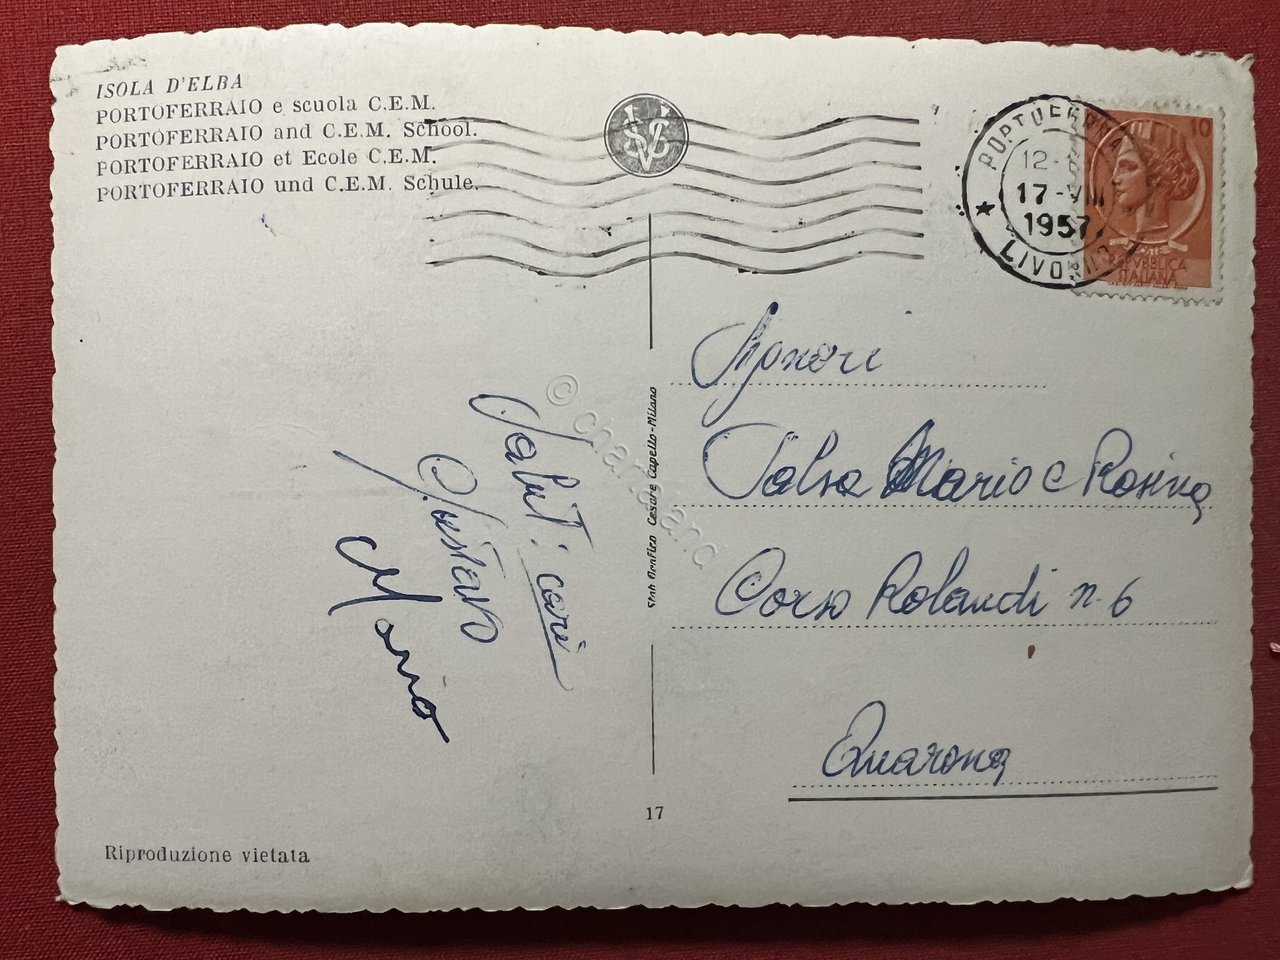 ISOLA D'ELBA
PORTOFERRAIO e scuola C.E.M.
PORTOFERRAIO and C.E.M. School.
PORTOFERRAIO et Ecole C.E.M.
PORTOFERRAIO und C.E.M. Schule.
PORTOFERRAIO
12-
17-VIII
1957
LIVORNO
10
REPUBBLICA
ITALIANA
Signori
Salsa Mario e Rosina
Corso Rolandi n. 6
Quarona
Saluti cari
Gustavo
Mario
Cesare Capello - Milano
© chartaland
17
Riproduzione vietata